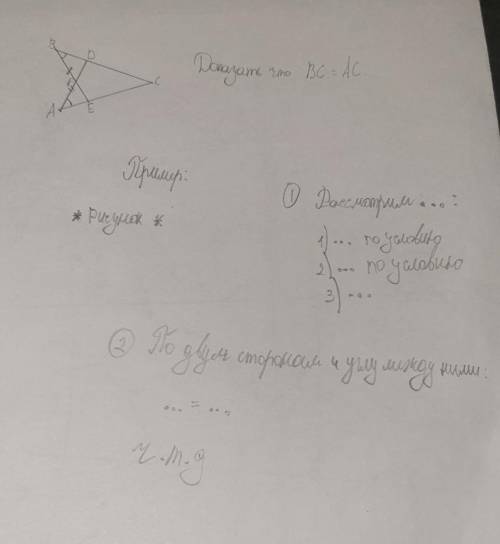 B
D
Доказать что BC = AC.
C
A
E
Пример:
* Рисунок *
① Рассмотрим ...:
1) ... по условию
2) ... по условию
3) ...
② По двум сторонам и углу между ними:
... = ...
Ч.т.д